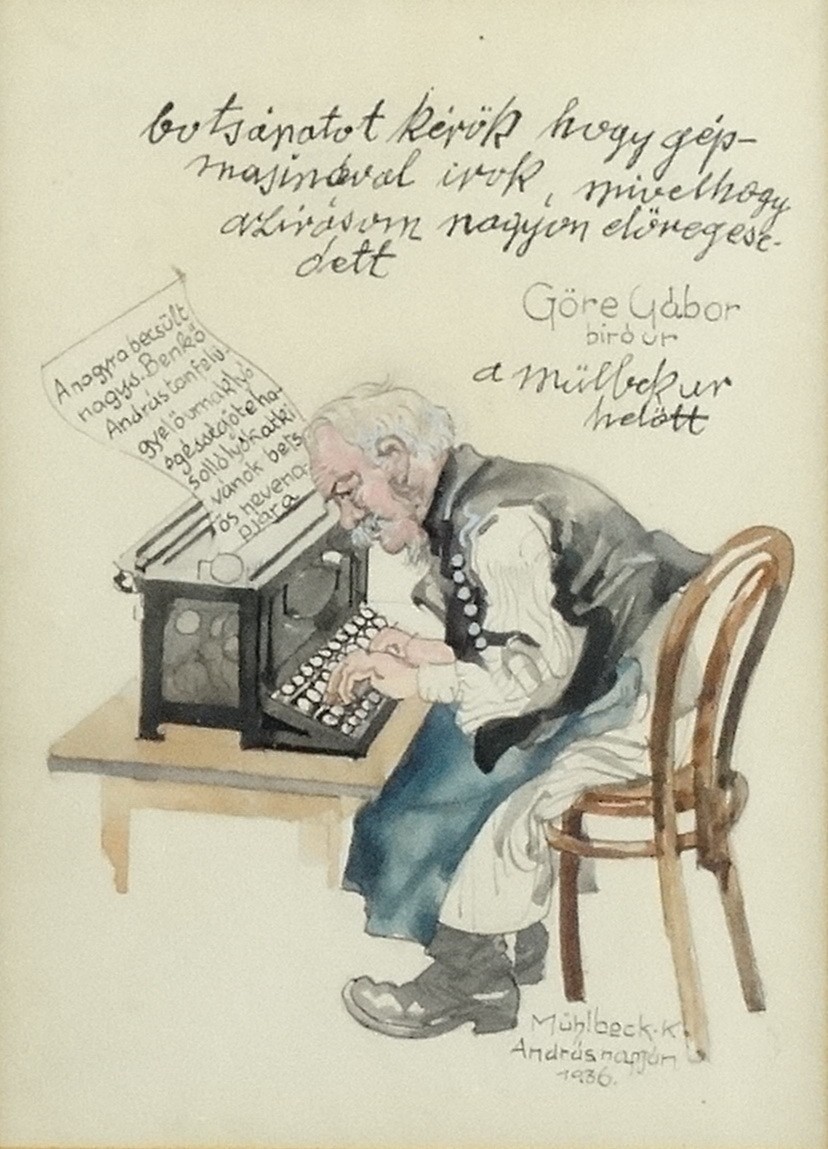 botsánatot kérök hogy gép-
masinával irok, mivelhogy
azirásom nagyon elöregese-
dett
Göre Gábor
biró ur
a mülbek ur
helött
A nagyra becsült
nagys. Benkő
András tanfelü-
gyelö urnak jó
egésségöt éha-
sollólyókat ki
vánok bets
ös nevena-
pjára
Mühlbeck. K.
András napján
1936.